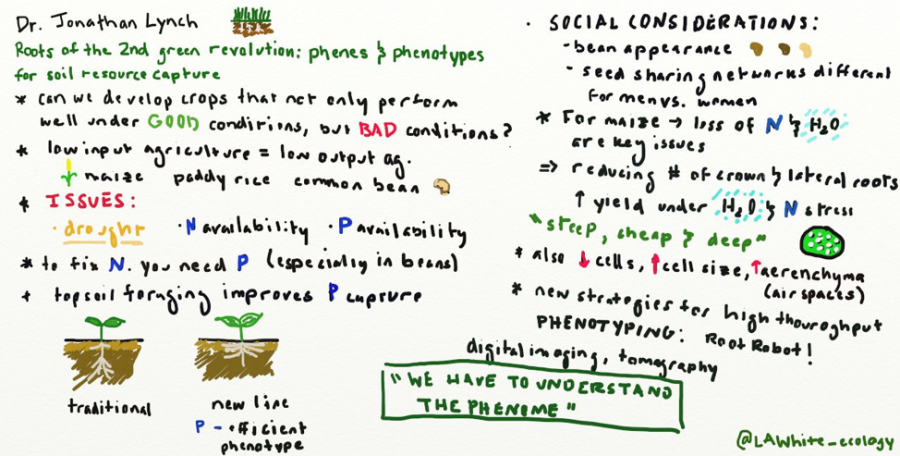 Dr. Jonathan Lynch
Roots of the 2nd green revolution: phenes & phenotypes
for soil resource capture
* can we develop crops that not only perform
well under GOOD conditions, but BAD conditions?
* low input agriculture = low output ag.
↓ maize paddy rice common bean
* ISSUES:
· drought · N availability · P availability
* to fix N. you need P (especially in beans)
+ topsoil foraging improves P capture
traditional
new line
P - efficient
phenotype
· SOCIAL CONSIDERATIONS:
- bean appearance
- seed sharing networks different
for men vs. women
* For maize → loss of N & H2O
are key issues
⇒ reducing # of crown & lateral roots
↑ yield under H2O & N stress
"steep, cheap & deep"
* also ↓ cells, ↑ cell size, ↑ aerenchyma
(air spaces)
* new strategies for high thouroghput
PHENOTYPING: Root Robot!
digital imaging, tomography
"WE HAVE TO UNDERSTAND
THE PHENOME"
@LAWhite_ecology